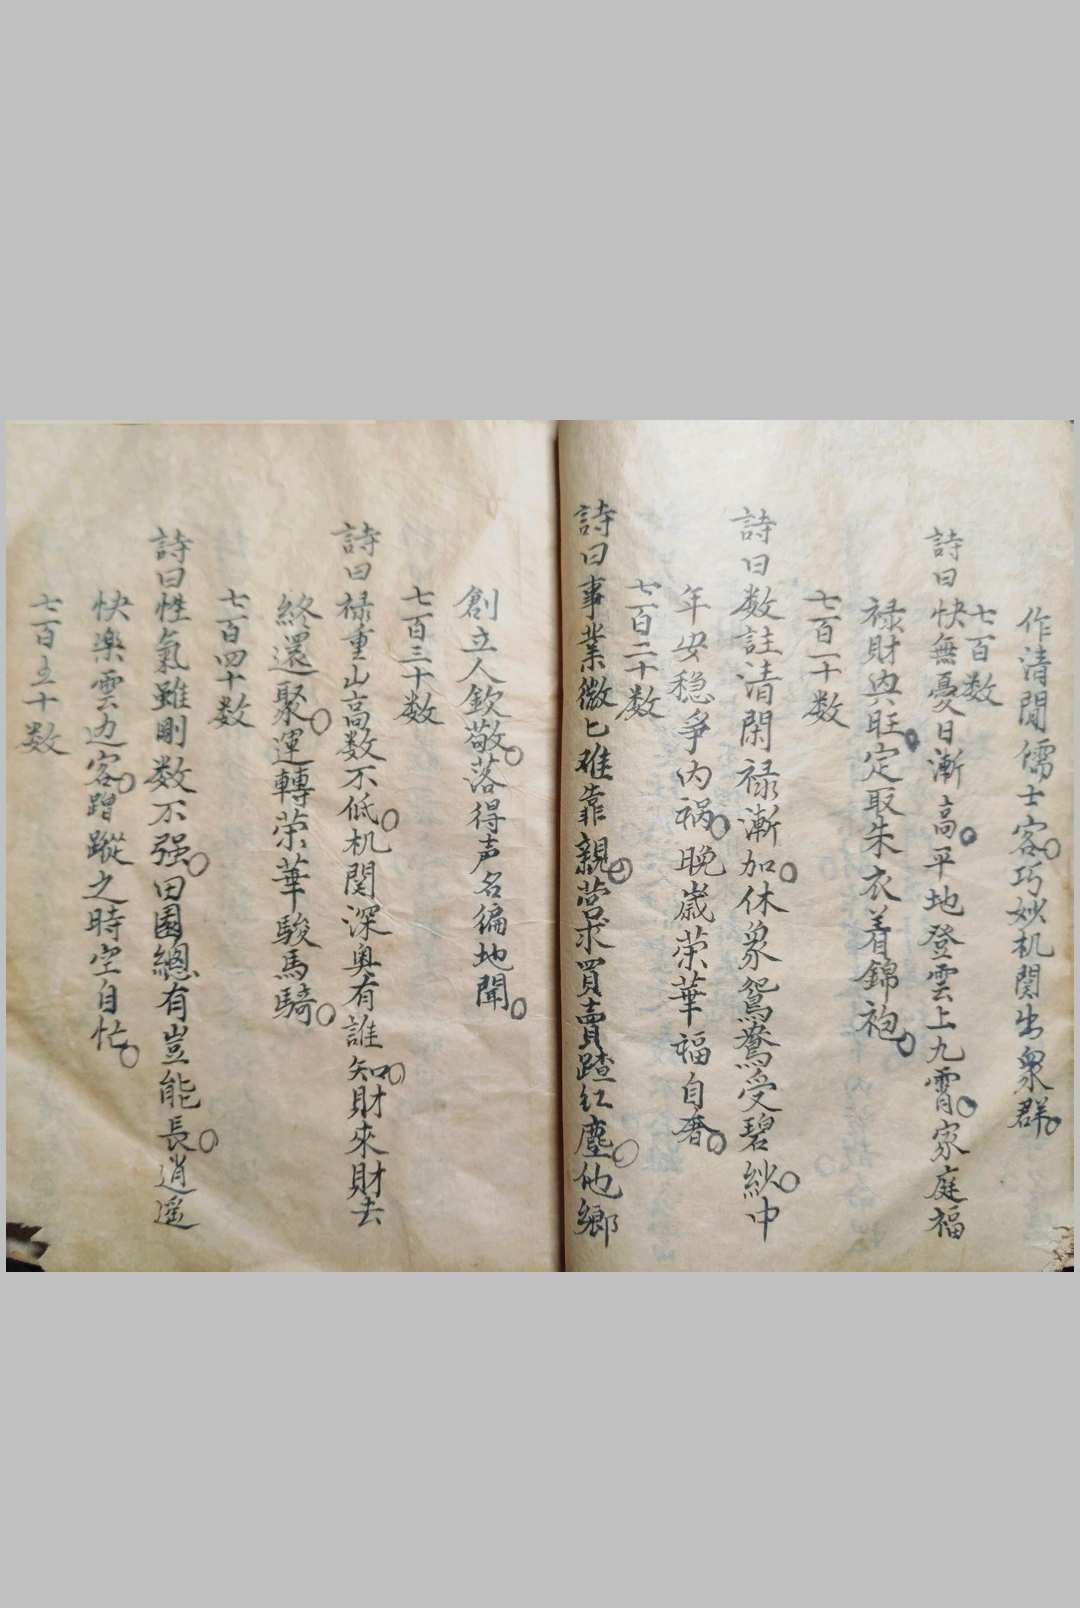 作清閒儒士客○巧妙机関出衆群○
七百数
詩曰快無憂日漸高○平地登雲上九霄○家庭福
禄財興旺○定取朱衣着錦袍○
七百一十数
詩曰数註清閑禄漸加○休象鴛鴦受碧紗○中
年安穏爭内祸○晚歳荣華福自奢○
七百二十数
詩曰事業微匕难靠親○营求買賣蹅红塵○他鄉
創立人欽敬○落得声名徧地聞○
七百三十数
詩曰禄重山高数不低○机関深奥有誰知○財來財去
終還聚○運轉荣華駿馬騎○
七百四十数
詩曰性氣雖剛数不强○田園總有豈能長○逍遥
快楽雲边客○蹭蹤之時空自忙○
七百五十数